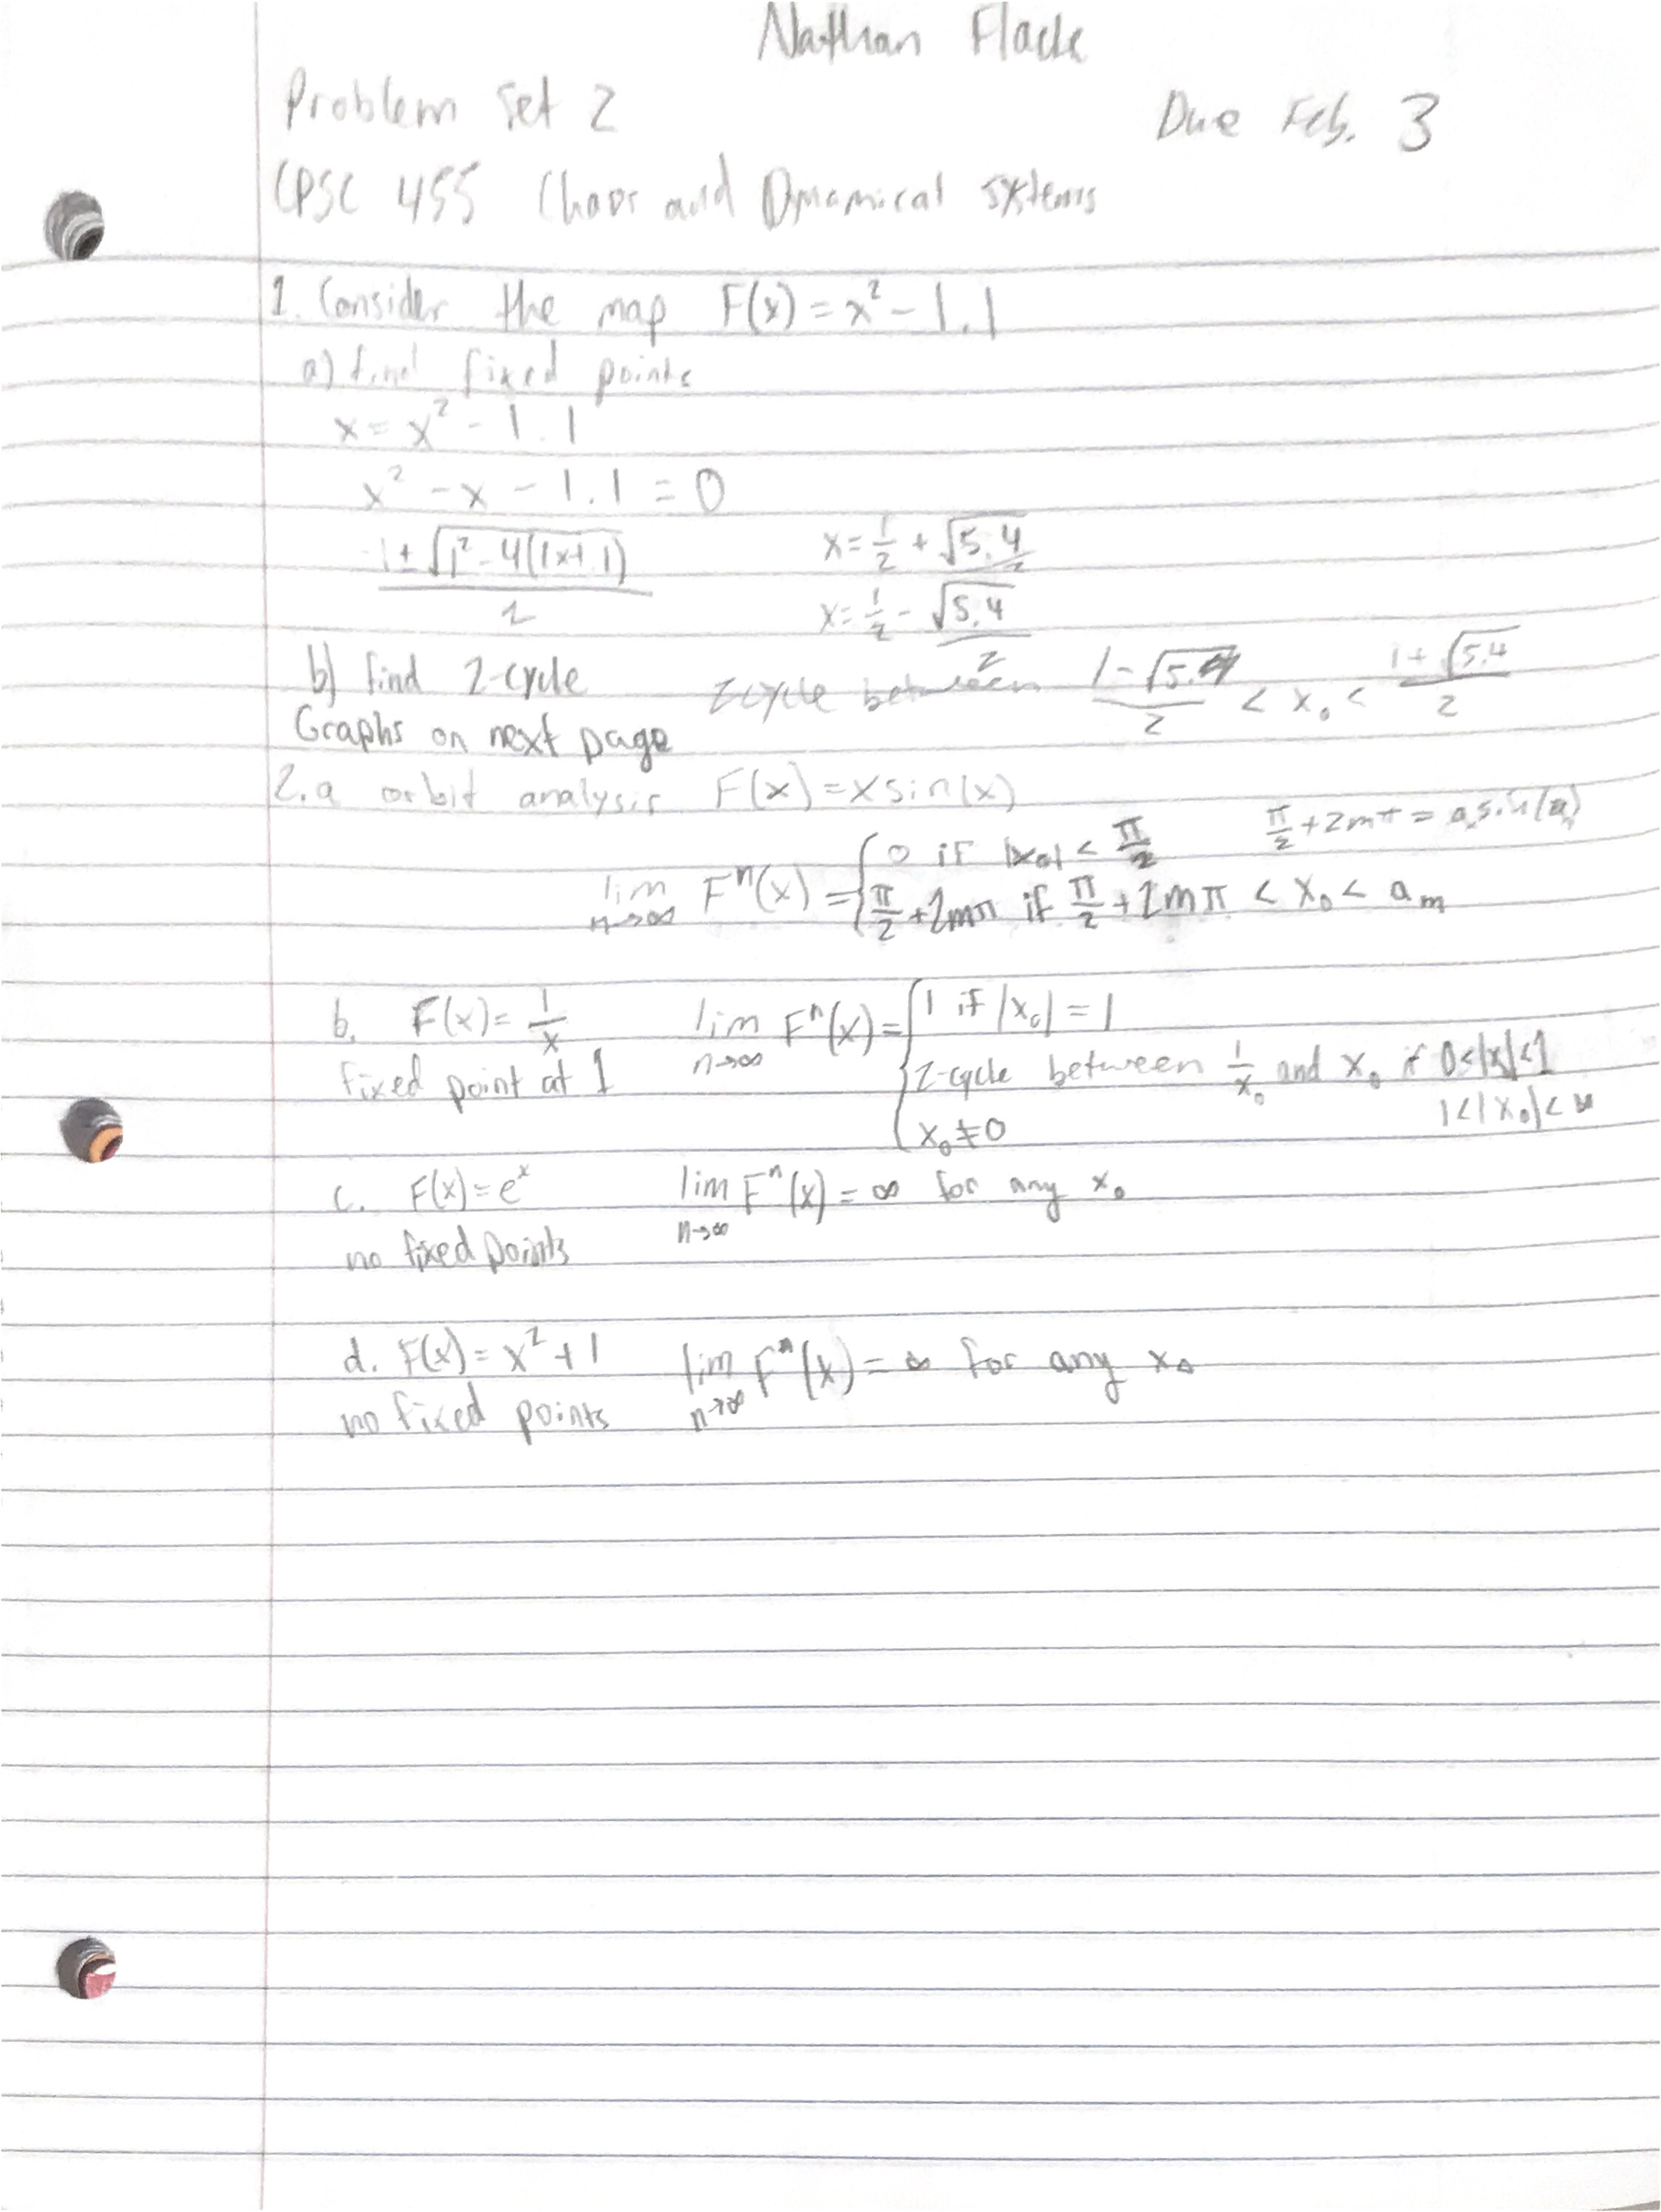 Nathan Flack
Problem Set 2 Due Feb. 3
CPSC 455 Chaos and Dynamical Systems
1. Consider the map F(x) = x² - 1.1
a) find fixed points
x = x² - 1.1
x² - x - 1.1 = 0
1 ± √(1² - 4(1x1.1)) / 2
x = 1/2 + √5.4 / 2
x = 1/2 - √5.4 / 2
b) find 2-cycle 2 cycle between (1 - √5.4)/2 < x₀ < (1 + √5.4)/2
Graphs on next page
2.a orbit analysis F(x) = x sin(x)
π/2 + 2mπ = aₘ sin(aₘ)
lim n→∞ Fⁿ(x) = { 0 if |x₀| < π/2
π/2 + 2mπ if π/2 + 2mπ < x₀ < aₘ
b. F(x) = 1/x lim n→∞ Fⁿ(x) = { 1 if |x₀| = 1
fixed point at 1 2-cycle between 1/x₀ and x₀ if 0<|x|<1
1<|x₀|<∞
x₀ ≠ 0
c. F(x) = eˣ lim n→∞ Fⁿ(x) = ∞ for any x₀
no fixed points
d. F(x) = x² + 1 lim n→∞ Fⁿ(x) = ∞ for any x₀
no fixed points